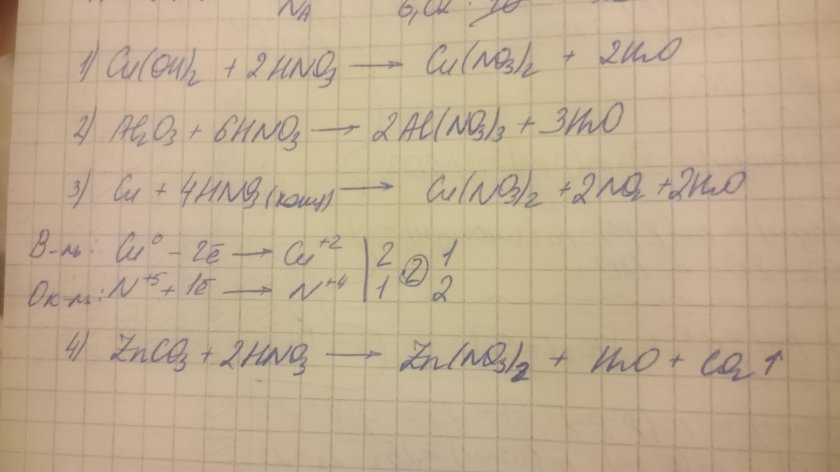 N_A
1) Cu(OH)₂ + 2HNO₃ → Cu(NO₃)₂ + 2H₂O
2) Al₂O₃ + 6HNO₃ → 2Al(NO₃)₃ + 3H₂O
3) Cu + 4HNO₃(конц) → Cu(NO₃)₂ + 2NO₂ + 2H₂O
В-ль: Cu⁰ - 2ē → Cu⁺² | 2 (2) 1
Ок-ль: N⁺⁵ + 1ē → N⁺⁴ | 1 2
4) ZnCO₃ + 2HNO₃ → Zn(NO₃)₂ + H₂O + CO₂↑